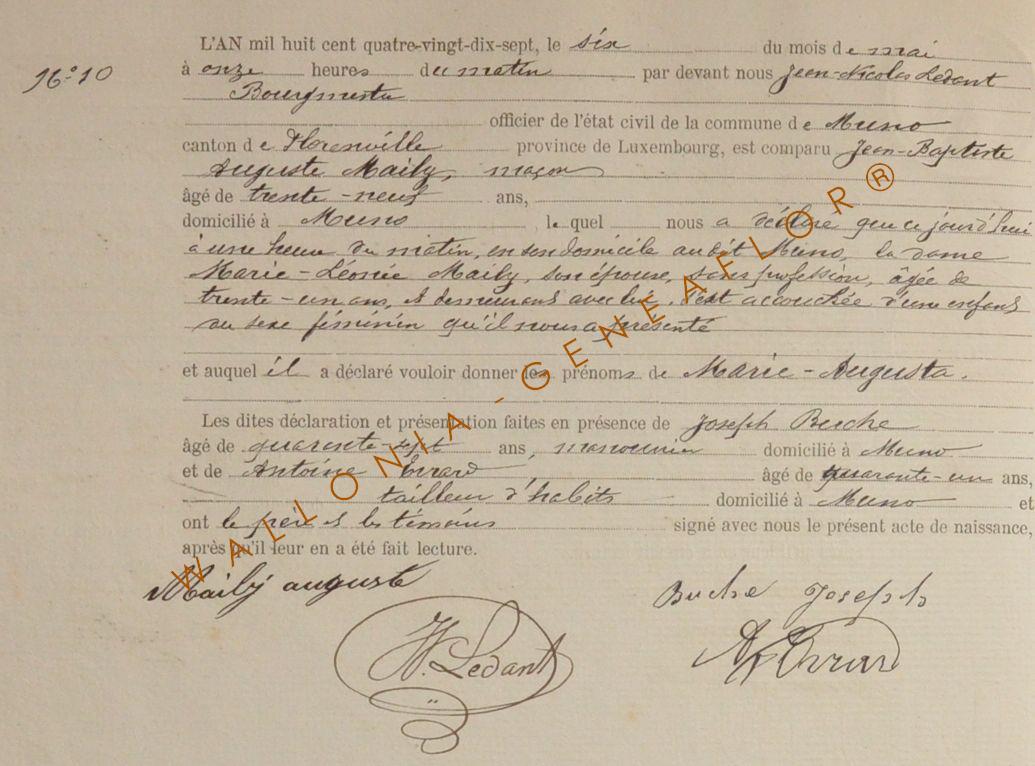 L'AN mil huit cent quatre-vingt-dix-sept, le six du mois de mai
N° 10
à onze heures du matin par devant nous Jean-Nicolas Ledant
Bourgmestre
officier de l'état civil de la commune de Muno
canton de Florenville province de Luxembourg, est comparu Jean-Baptiste
Auguste Maily, maçon
âgé de trente-neuf ans,
domicilié à Muno, le quel nous a déclaré que ce jourd'hui
à une heure du matin, en son domicile audit Muno, la dame
Marie-Léonie Maily, son épouse, sans profession, âgée de
trente-un ans, et demeurant avec lui, s'est accouchée d'une enfant
du sexe féminin qu'il nous a présenté
et auquel il a déclaré vouloir donner les prénoms de Marie-Augusta.
Les dites déclaration et présentation faites en présence de Joseph Buche
âgé de quarante-sept ans, manouvrier domicilié à Muno
et de Antoine Evrard âgé de quarante-un ans,
tailleur d'habits domicilié à Muno et
ont le père et les témoins signé avec nous le présent acte de naissance,
après qu'il leur en a été fait lecture.
Maily auguste
Buche Joseph
N. Ledant
Evrard
WALLONIA-GENEAFLOR®